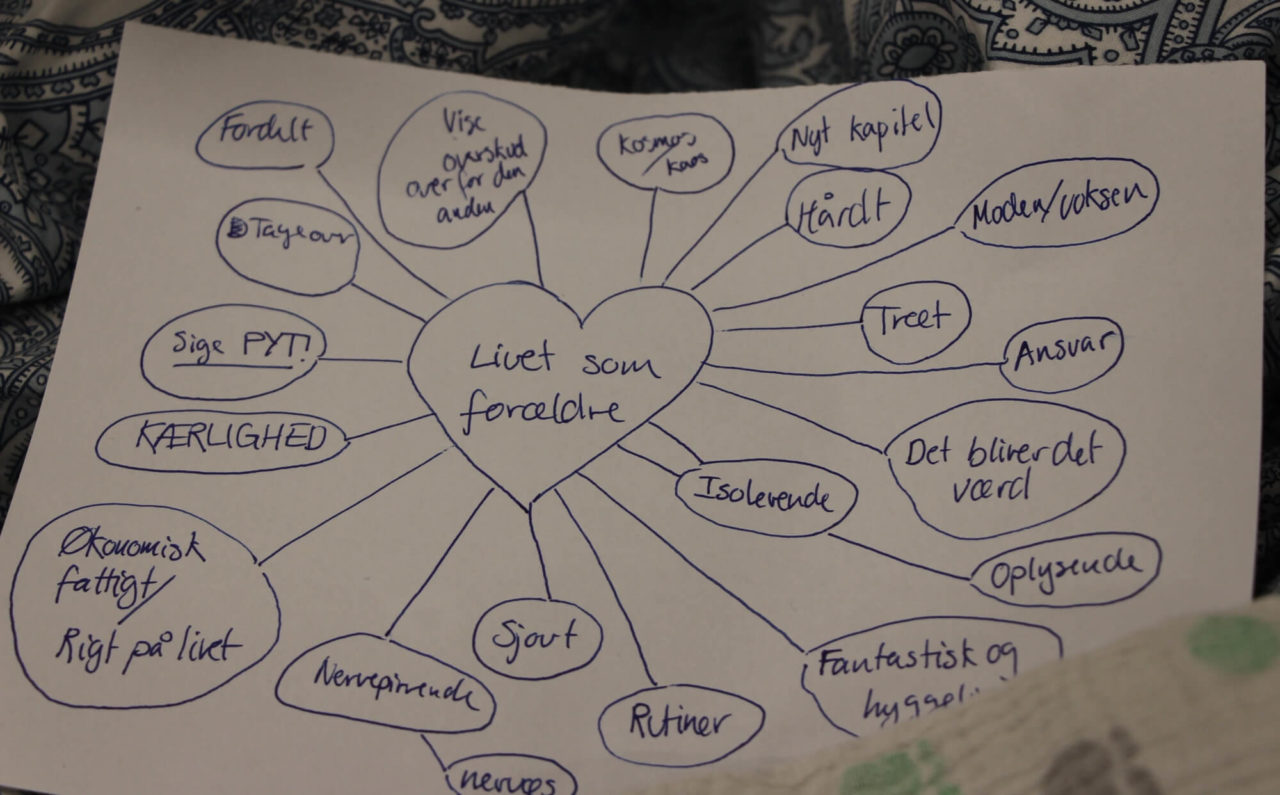 Fordelt
Vise
overskud
over for den
anden
Kosmos
/kaos
Nyt kapitel
Hårdt
Moden/voksen
Tageovr
Træt
Sige PYT!
Ansvar
Livet som
forældre
KÆRLIGHED
Det bliver det
værd
Isolerende
Økonomisk
fattigt/
Rigt på livet
Oplysende
Sjovt
Nervepirrende
Fantastisk og
Rutiner
nervøs